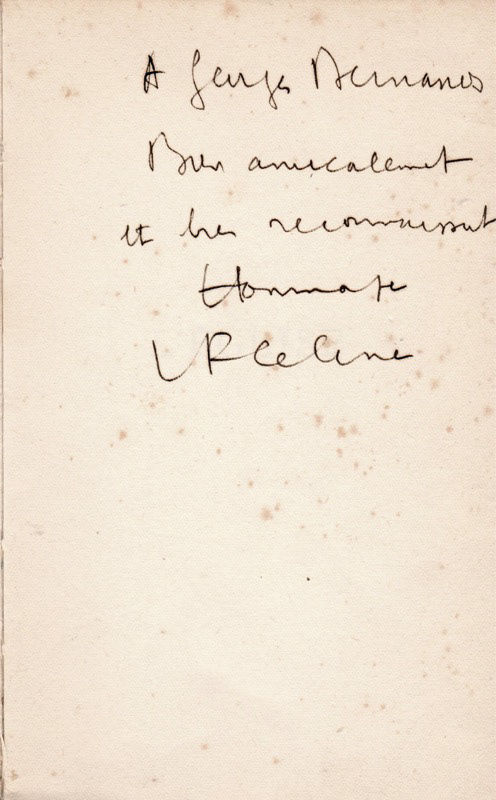 A Georges Bernanos
Bien amicalement
et bien reconnaissant
Hommage
LF Celine